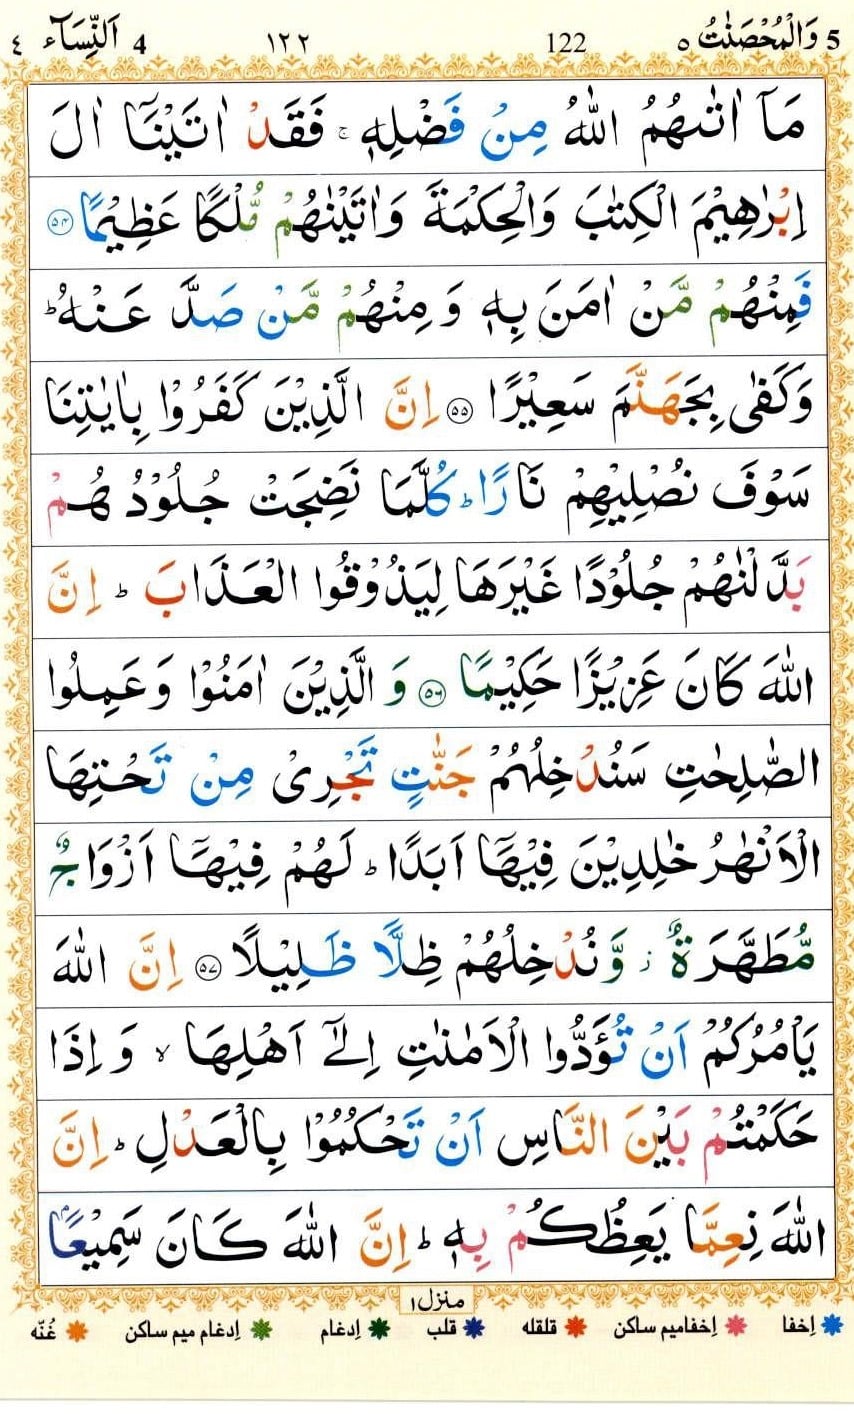 5 وَالْمُحْصَنٰتُ ٥ 122 ١٢٢ 4 اَلنِّسَآء ٤
مَآ اٰتٰىهُمُ اللّٰهُ مِنْ فَضْلِهٖ ۚ فَقَدْ اٰتَيْنَآ اٰلَ
اِبْرٰهِيْمَ الْكِتٰبَ وَالْحِكْمَةَ وَاٰتَيْنٰهُمْ مُّلْكًا عَظِيْمًا ﴿۵۴﴾
فَمِنْهُمْ مَّنْ اٰمَنَ بِهٖ وَمِنْهُمْ مَّنْ صَدَّ عَنْهُ ؕ
وَكَفٰى بِجَهَنَّمَ سَعِيْرًا ﴿۵۵﴾ اِنَّ الَّذِيْنَ كَفَرُوْا بِاٰيٰتِنَا
سَوْفَ نُصْلِيْهِمْ نَارًا ؕ كُلَّمَا نَضِجَتْ جُلُوْدُهُمْ
بَدَّلْنٰهُمْ جُلُوْدًا غَيْرَهَا لِيَذُوْقُوا الْعَذَابَ ؕ اِنَّ
اللّٰهَ كَانَ عَزِيْزًا حَكِيْمًا ﴿۵۶﴾ وَالَّذِيْنَ اٰمَنُوْا وَعَمِلُوا
الصّٰلِحٰتِ سَنُدْخِلُهُمْ جَنّٰتٍ تَجْرِيْ مِنْ تَحْتِهَا
الْاَنْهٰرُ خٰلِدِيْنَ فِيْهَآ اَبَدًا ؕ لَهُمْ فِيْهَآ اَزْوَاجٌ
مُّطَهَّرَةٌ ؗ وَّنُدْخِلُهُمْ ظِلًّا ظَلِيْلًا ﴿۵۷﴾ اِنَّ اللّٰهَ
يَاْمُرُكُمْ اَنْ تُؤَدُّوا الْاَمٰنٰتِ اِلٰٓى اَهْلِهَا ۙ وَاِذَا
حَكَمْتُمْ بَيْنَ النَّاسِ اَنْ تَحْكُمُوْا بِالْعَدْلِ ؕ اِنَّ
اللّٰهَ نِعِمَّا يَعِظُكُمْ بِهٖ ؕ اِنَّ اللّٰهَ كَانَ سَمِيْعًۢا
منزل ١
اِخفا اِخفامیم ساکن قلقله قلب اِدغام اِدغام میم ساکن غُنّه